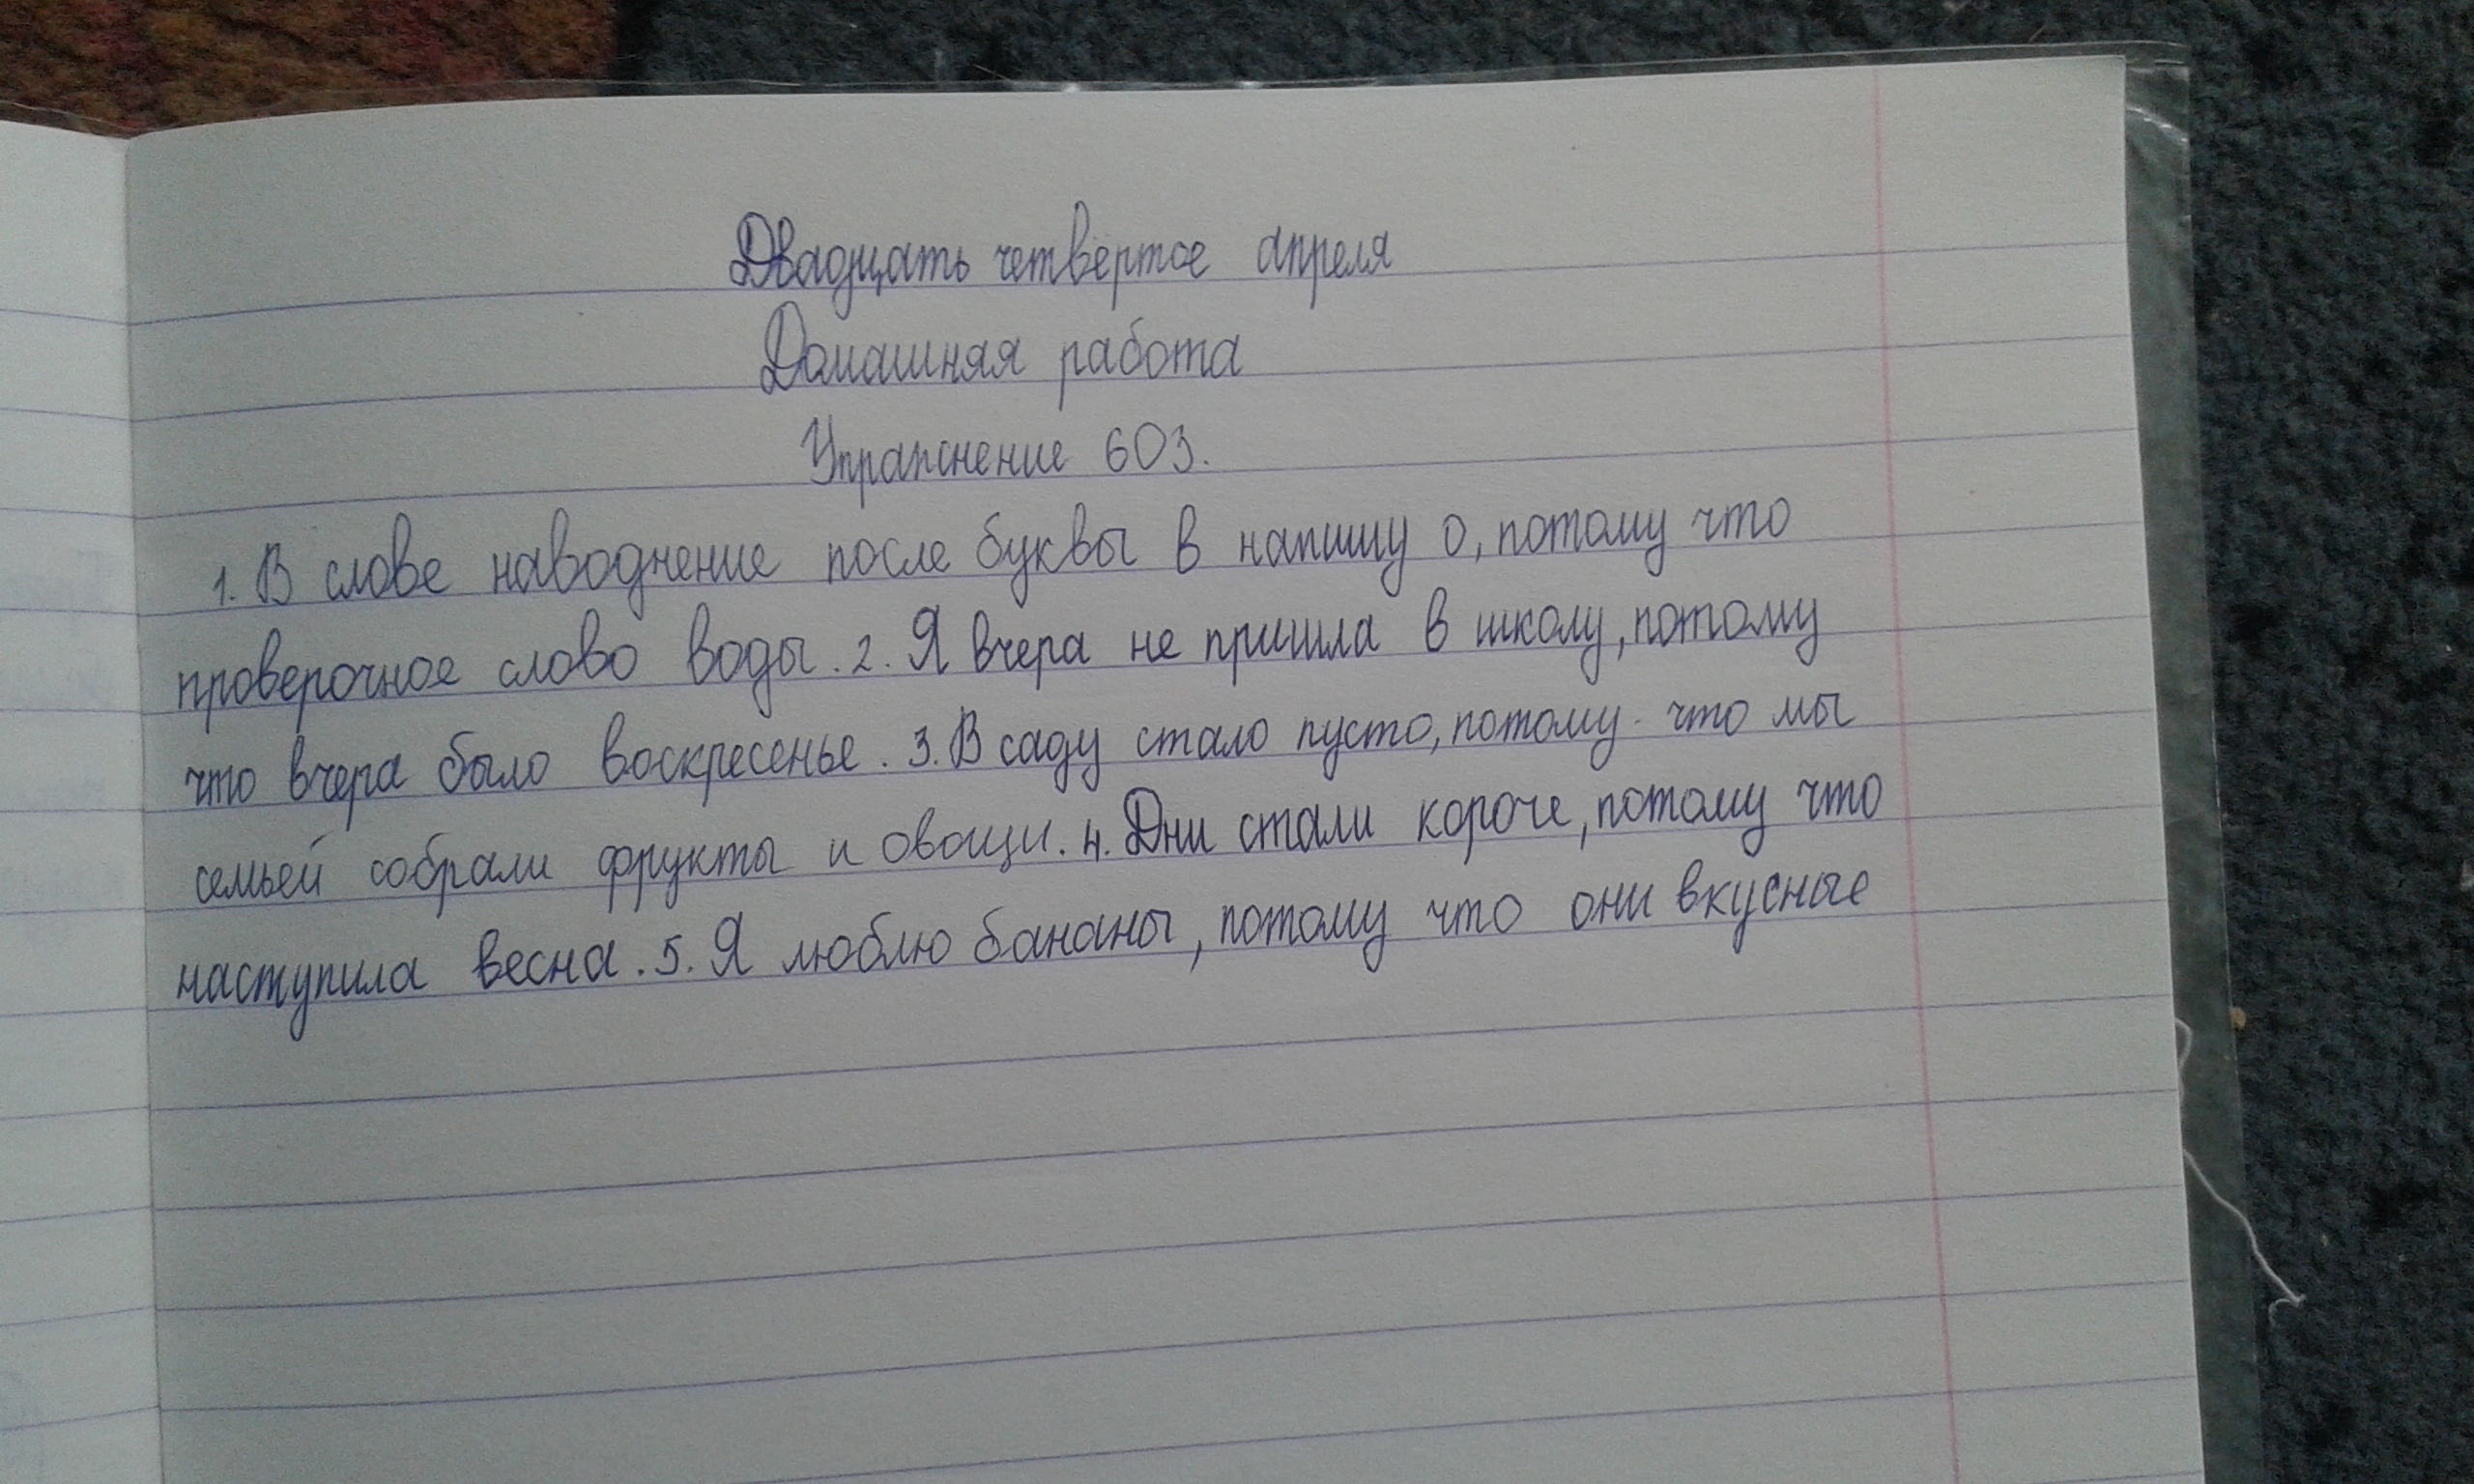 Двадцать четвёртое апреля
Домашняя работа
Упражнение 603.
1. В слове наводнение после буквы в напишу о, потому что
проверочное слово воды. 2. Я вчера не пришла в школу, потому
что вчера было воскресенье. 3. В саду стало пусто, потому что мы
семьей собрали фрукты и овощи. 4. Дни стали короче, потому что
наступила весна. 5. Я люблю бананы, потому что они вкусные